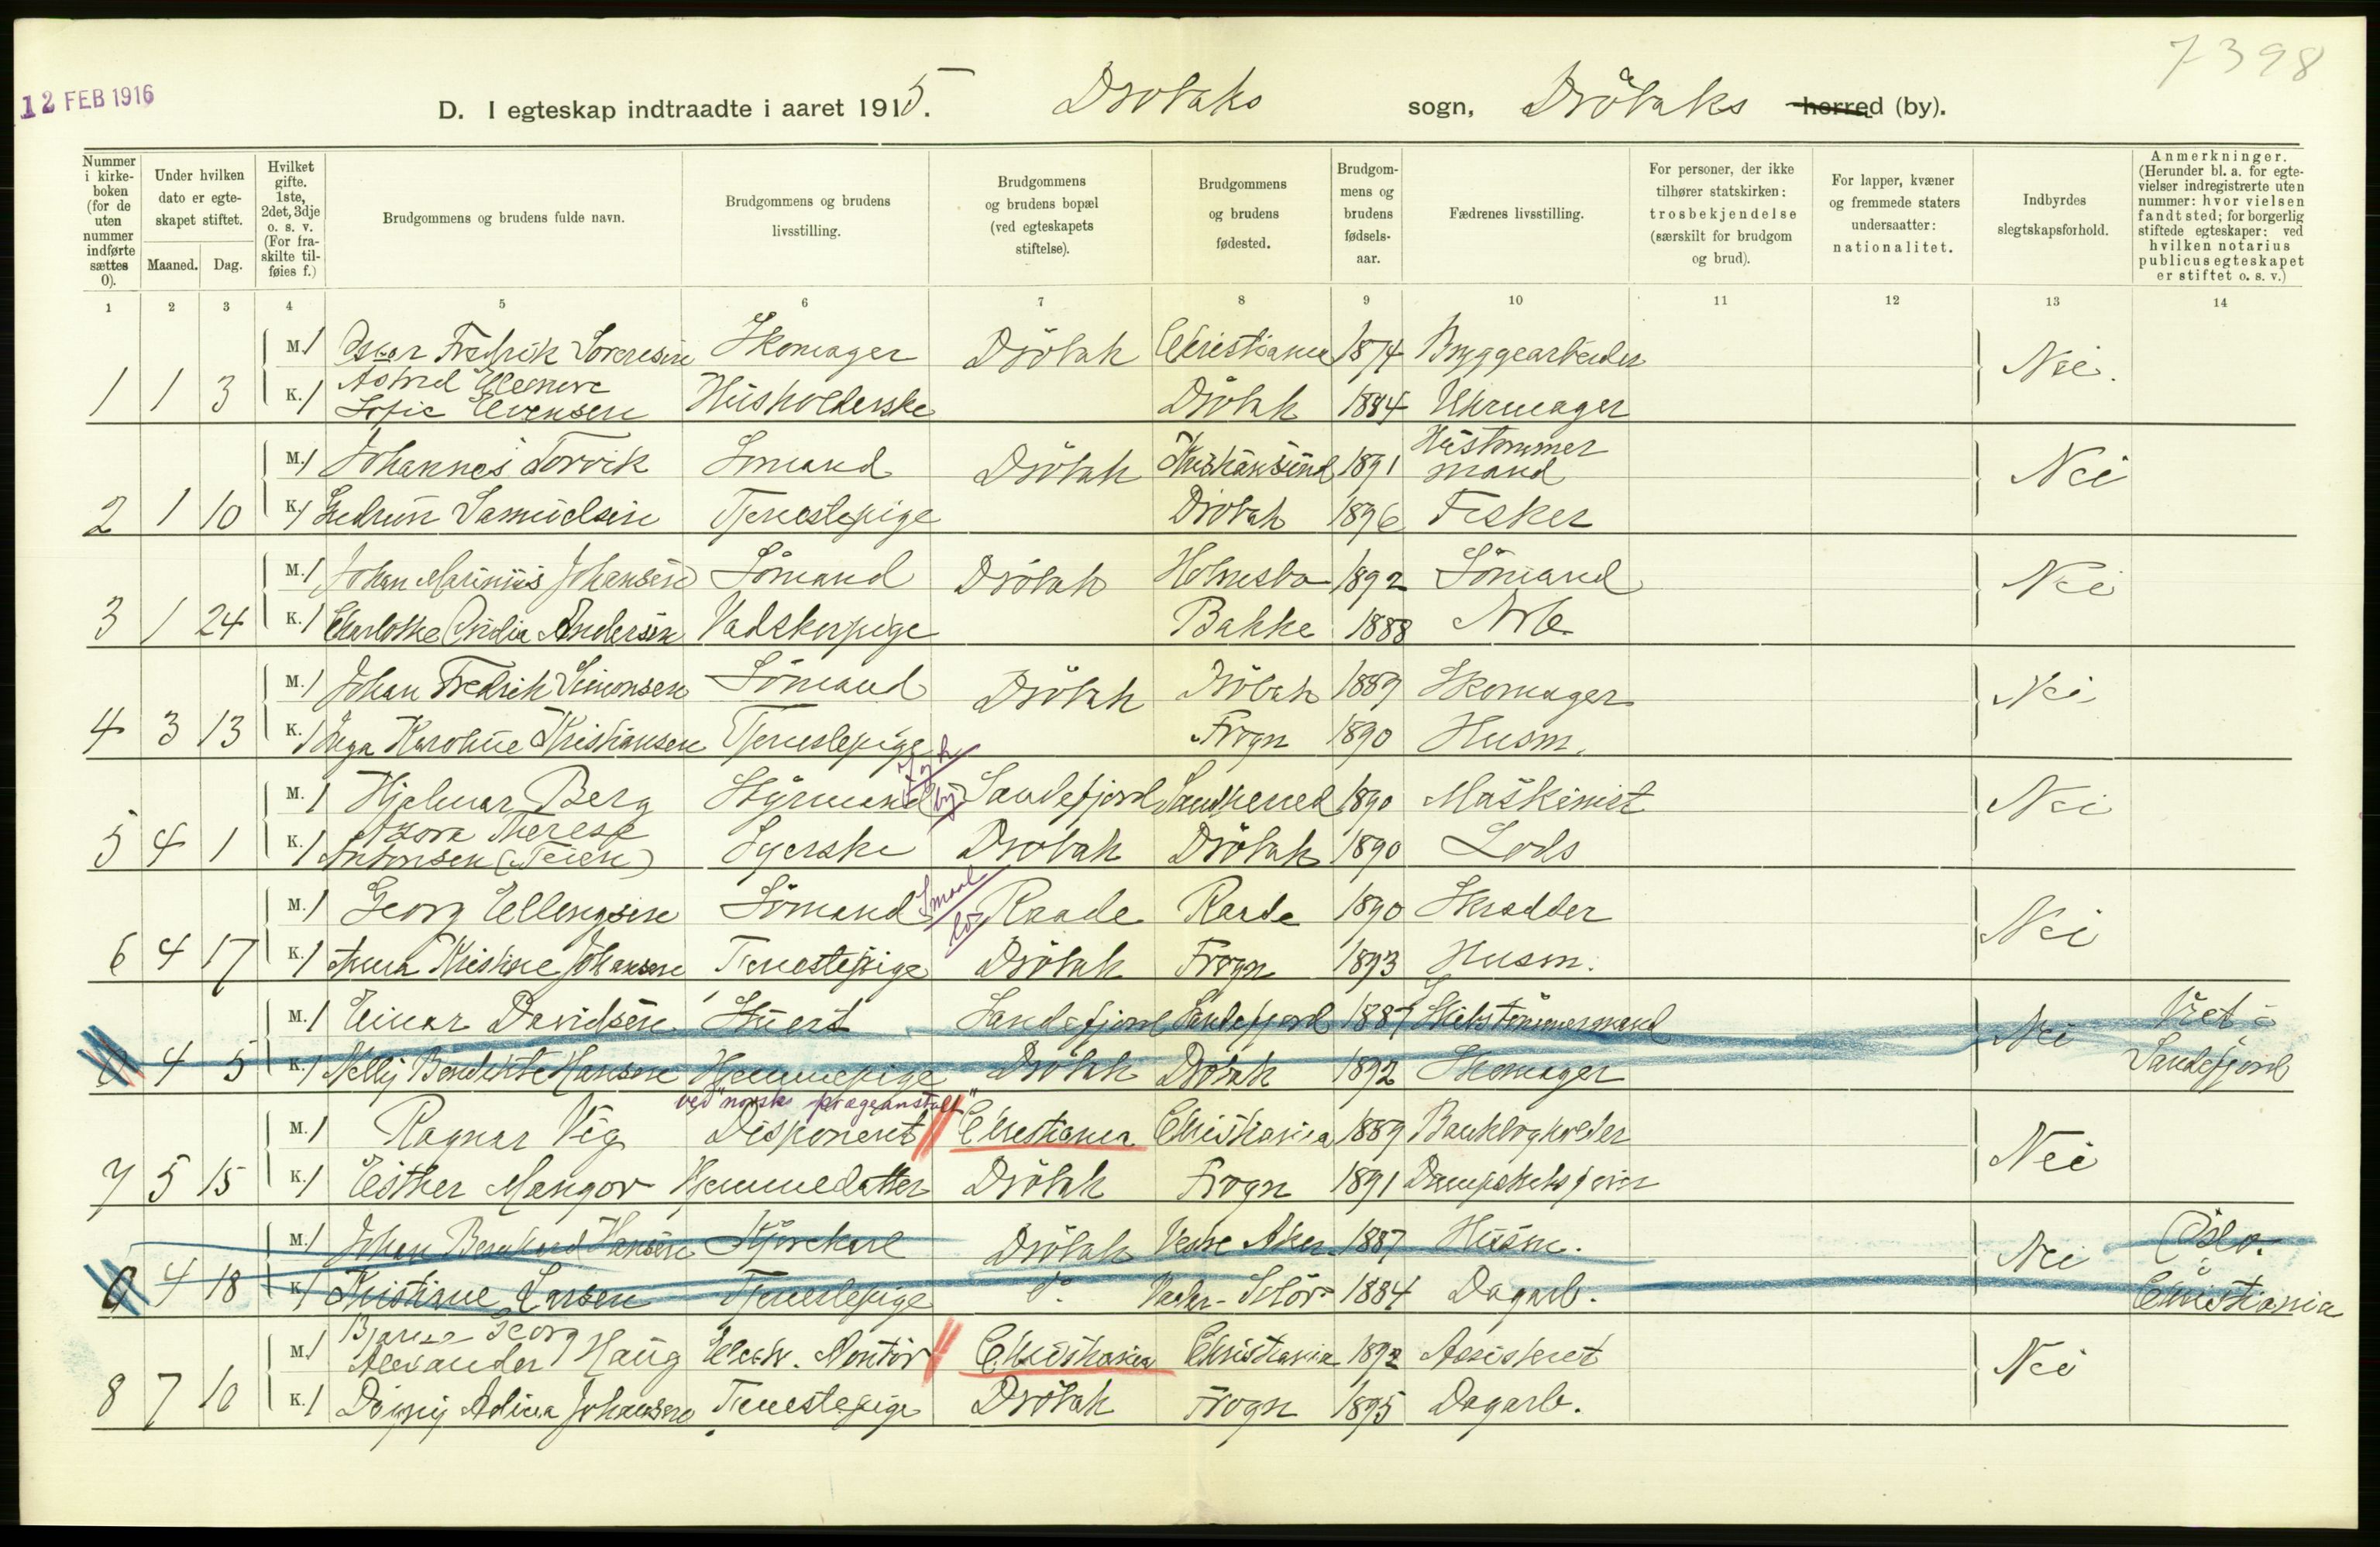 7398
12 FEB 1916
D. I egteskap indtraadte i aaret 1915. Drøbaks sogn, Drøbaks herred (by).
Nummer i kirkeboken (for de uten nummer indførte sættes 0).
Under hvilken dato er egteskapet stiftet.
Maaned. Dag.
Hvilket gifte. 1ste, 2det, 3dje o. s. v. (For fraskilte tilføies f.)
Brudgommens og brudens fulde navn.
Brudgommens og brudens livsstilling.
Brudgommens og brudens bopæl (ved egteskapets stiftelse).
Brudgommens og brudens fødested.
Brudgommens og brudens fødselsaar.
Fædrenes livsstilling.
For personer, der ikke tilhører statskirken: trosbekjendelse (særskilt for brudgom og brud).
For lapper, kvæner og fremmede staters undersaatter: nationalitet.
Indbyrdes slegtskapsforhold.
Anmerkninger. (Herunder bl. a. for egtevielser indregistrerte uten nummer: hvor vielsen fandt sted; for borgerlig stiftede egteskaper: ved hvilken notarius publicus egteskapet er stiftet o. s. v.)
1 2 3 4 5 6 7 8 9 10 11 12 13 14
M. 1 Oscar Fredrik Sörensen Skomager Dröbak Christiania 1874 Bryggearbeider Nei.
Astrid Elenore
1 1 3 K. 1 Sofie Evensen Husholderske Dröbak 1884 Uhrmager
Hustömmer
M. 1 Johannes Torvik Sömand Dröbak Kristiansund 1891 mand Nei
2 1 10 K. 1 Gudrun Samuelsen Tjenestepige Dröbak 1896 Fisker
M. 1 Johan Marinius Johansen Sömand Dröbak Holmsbo 1892 Sömand Nei
3 1 24 K. 1 Charlotte Andersen Vadskepige Bakke 1888 Arb.
M. 1 Johan Fredrik Simonsen Sömand Dröbak Dröbak 1889 Skomager Nei
4 3 13 K. 1 Inga Karoline Kristiansen Tjenestepige Frogn 1890 Husm.
M. 1 Hjalmar Berg Styrmand by Sandefjord Sandherred 1890 Maskinist Nei
Thora Therese
5 4 1 K. 1 Antonsen (Teien) Syerske Drøbak Dröbak 1890 Lods
Smaal
M. 1 Georg Ellingsen Sömand Raade Raade 1890 Skrædder Nei
6 4 17 K. 1 Anna Kristine Johansen Tjenestepige Dröbak Frogn 1893 Husm.
M. 1 Einar Davidsen Stuert Sandefjord Sandefjord 1887 Skibstömmermand Nei Viet i
0 4 5 K. 1 Nelly Benedikte Hansen Hjemmepige Dröbak Dröbak 1892 Skomager Sandefjord
ved "norsk prægeanstalt"
M. 1 Ragnar Vig Disponent Christiania Christiania 1889 Bankbogholder Nei
7 5 15 K. 1 Esther Mangor Hjemmedatter Dröbak Frogn 1891
M. 1 Johan Bernhard Hansen Kjörekarl Dröbak Vestre Aker 1887 Husm. Nei Oslo.
0 4 18 K. 1 Kristiane Larsen Tjenestepige do. Vaaler - Solör 1884 Dagarb. i Christiania
Bjarne Georg
M. 1 Alexander Haug Elektr. Montör Christiania Christiania 1892 Assistent Nei
8 7 10 K. 1 Dagny Adina Johansen Tjenestepige Dröbak Frogn 1895 Dagarb.